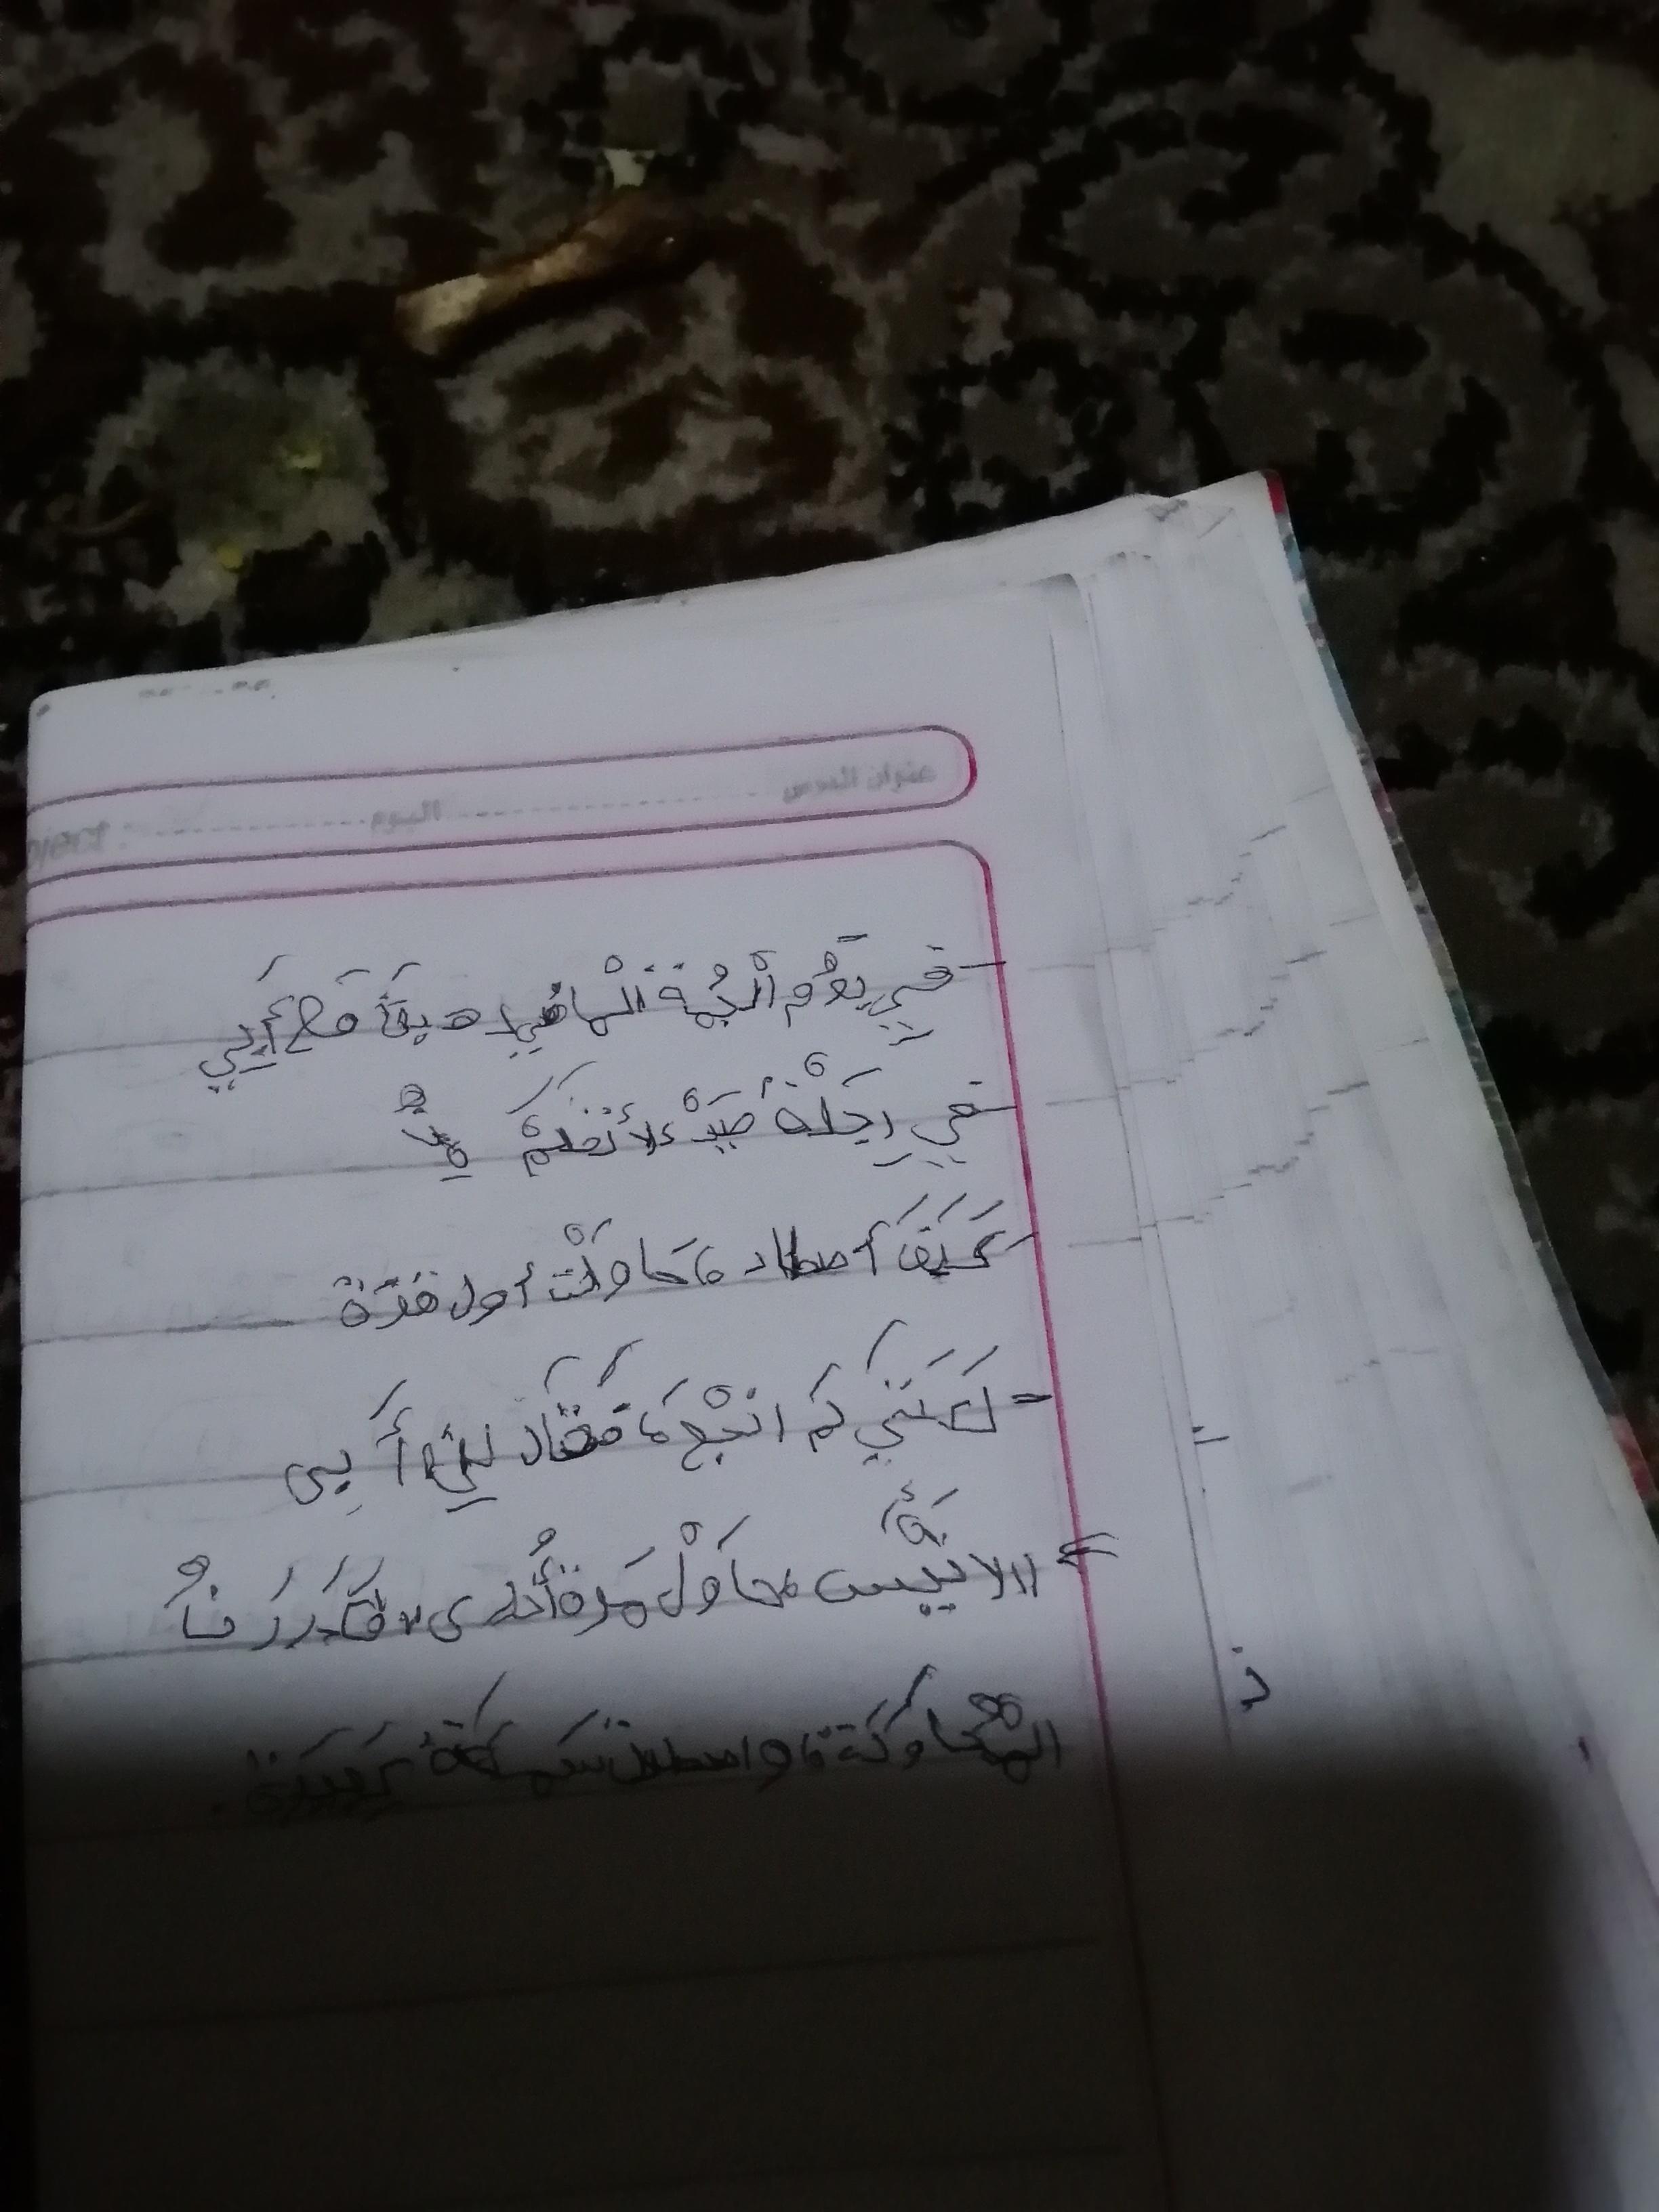 عنوان الدرس ............ اليوم ............ التاريخ
- فِي يَوْمِ الْجُمة الْماضِي ذهبتُ مَعَ أَبِي
- فِي رِحَلَةْ صَيَدْ، لأَتعَلمَ مِنْهُ
- كَيَفَ أصطاد، حَاوَلْت أول مَرّة
- لَكَنَنِي لَم انْجَح، فَقَالَ لِي أَبِي
= "لا تَيْأَس، حَاوَلْ مَرة أُخرى" فَكَررَنَا
المُحَاوَلَة، واصطدت سَمكَةً كَبيرَة.